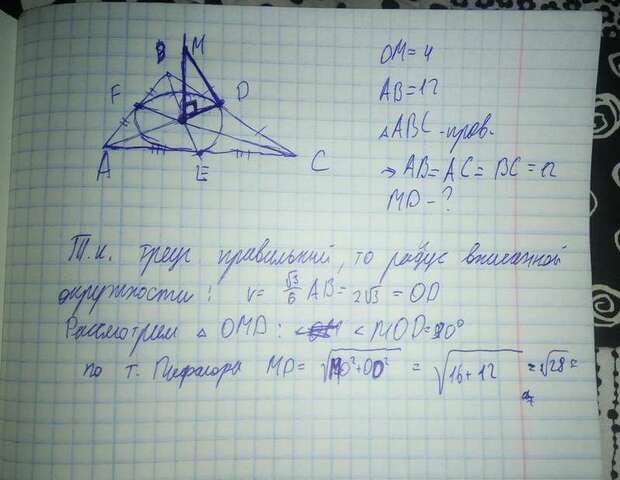 B
M
F
D
A
E
C
OM = 4
AB = 12
△ABC - прав.
→ AB = AC = BC = 12
MD - ?
Т.к. треуг. правильный, то радиус вписанной
окружности: r = √3/6 AB = 2√3 = OD
Рассмотрим △ OMD: < MOD = 90°
по т. Пифагора MD = √MO²+OD² = √16+12 = √28 =